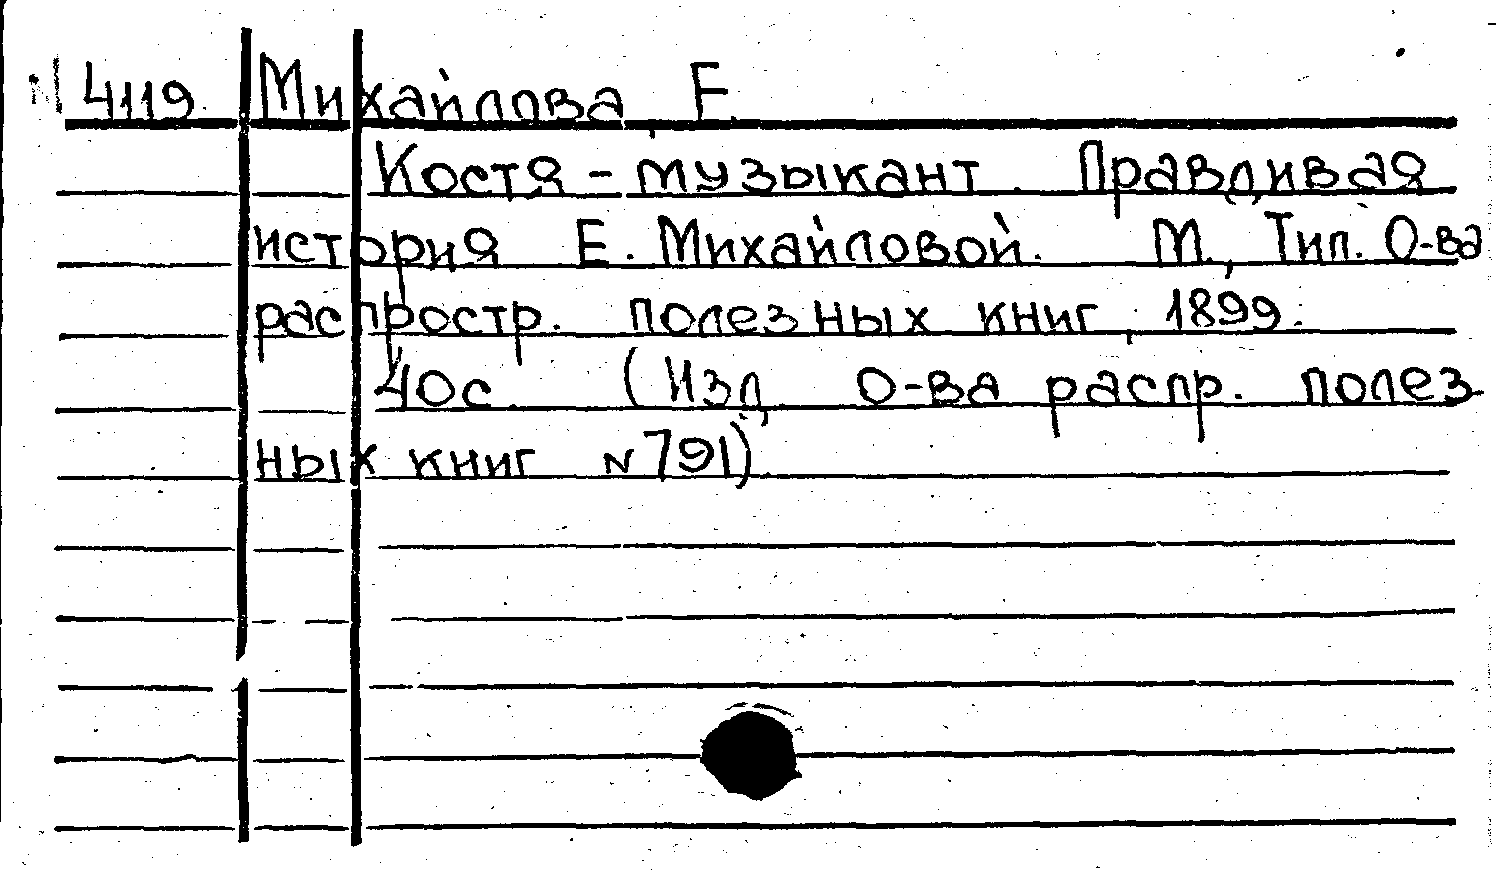 4119 Михайлова, Е.
Костя - музыкант. Правдивая
история Е. Михайловой. М., Тип. О-ва
распростр. полезных книг, 1899.
40с. (Изд. О-ва распр. полез-
ных книг N 791).